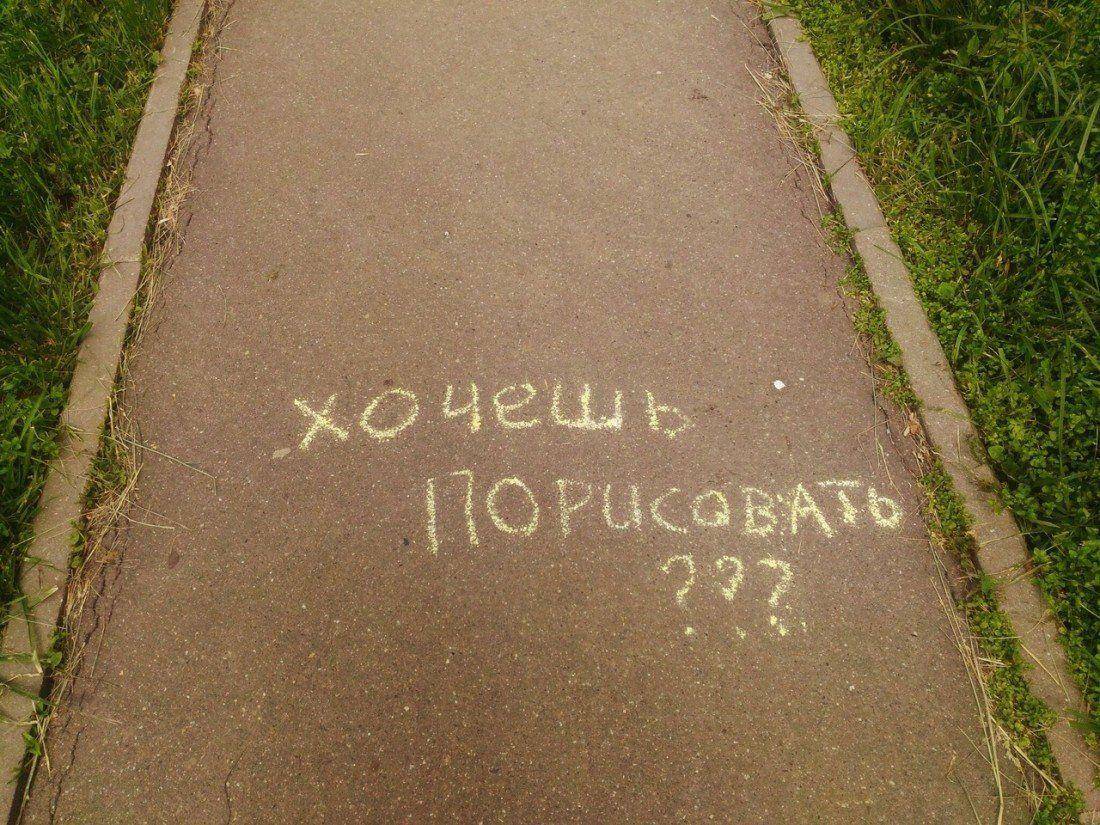 хочешь
порисовать
???